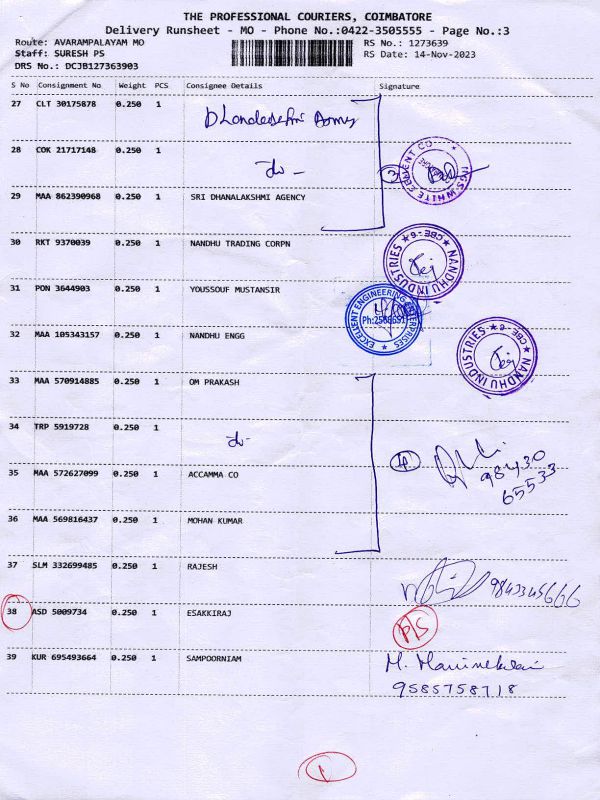 THE PROFESSIONAL COURIERS, COIMBATORE
Delivery Runsheet - MO - Phone No.:0422-3505555 - Page No.:3
Route: AVARAMPALAYAM MO
RS No.: 1273639
Staff: SURESH PS
RS Date: 14-Nov-2023
DRS No.: DCJB127363903
S No Consignment No Weight PCS Consignee Details Signature
27 CLT 30175878 0.250 1
28 COK 21717148 0.250 1
do -
3
29 MAA 862390968 0.250 1 SRI DHANALAKSHMI AGENCY
30 RKT 9370039 0.250 1 NANDHU TRADING CORPN
NANDHU INDUSTRIES ★ CBE-6 ★
31 PON 3644903 0.250 1 YOUSSOUF MUSTANSIR
EXCELLENT ENGINEERING ENTERPRISES
32 MAA 105343157 0.250 1 NANDHU ENGG
NANDHU INDUSTRIES ★ CBE-6 ★
33 MAA 570914885 0.250 1 OM PRAKASH
34 TRP 5919728 0.250 1
do -
98430
65533
35 MAA 572627099 0.250 1 ACCAMMA CO
36 MAA 569816437 0.250 1 MOHAN KUMAR
37 SLM 332699485 0.250 1 RAJESH
9843345666
38 ASD 5009734 0.250 1 ESAKKIRAJ
P/S
39 KUR 695493664 0.250 1 SAMPOORNIAM
9585758718